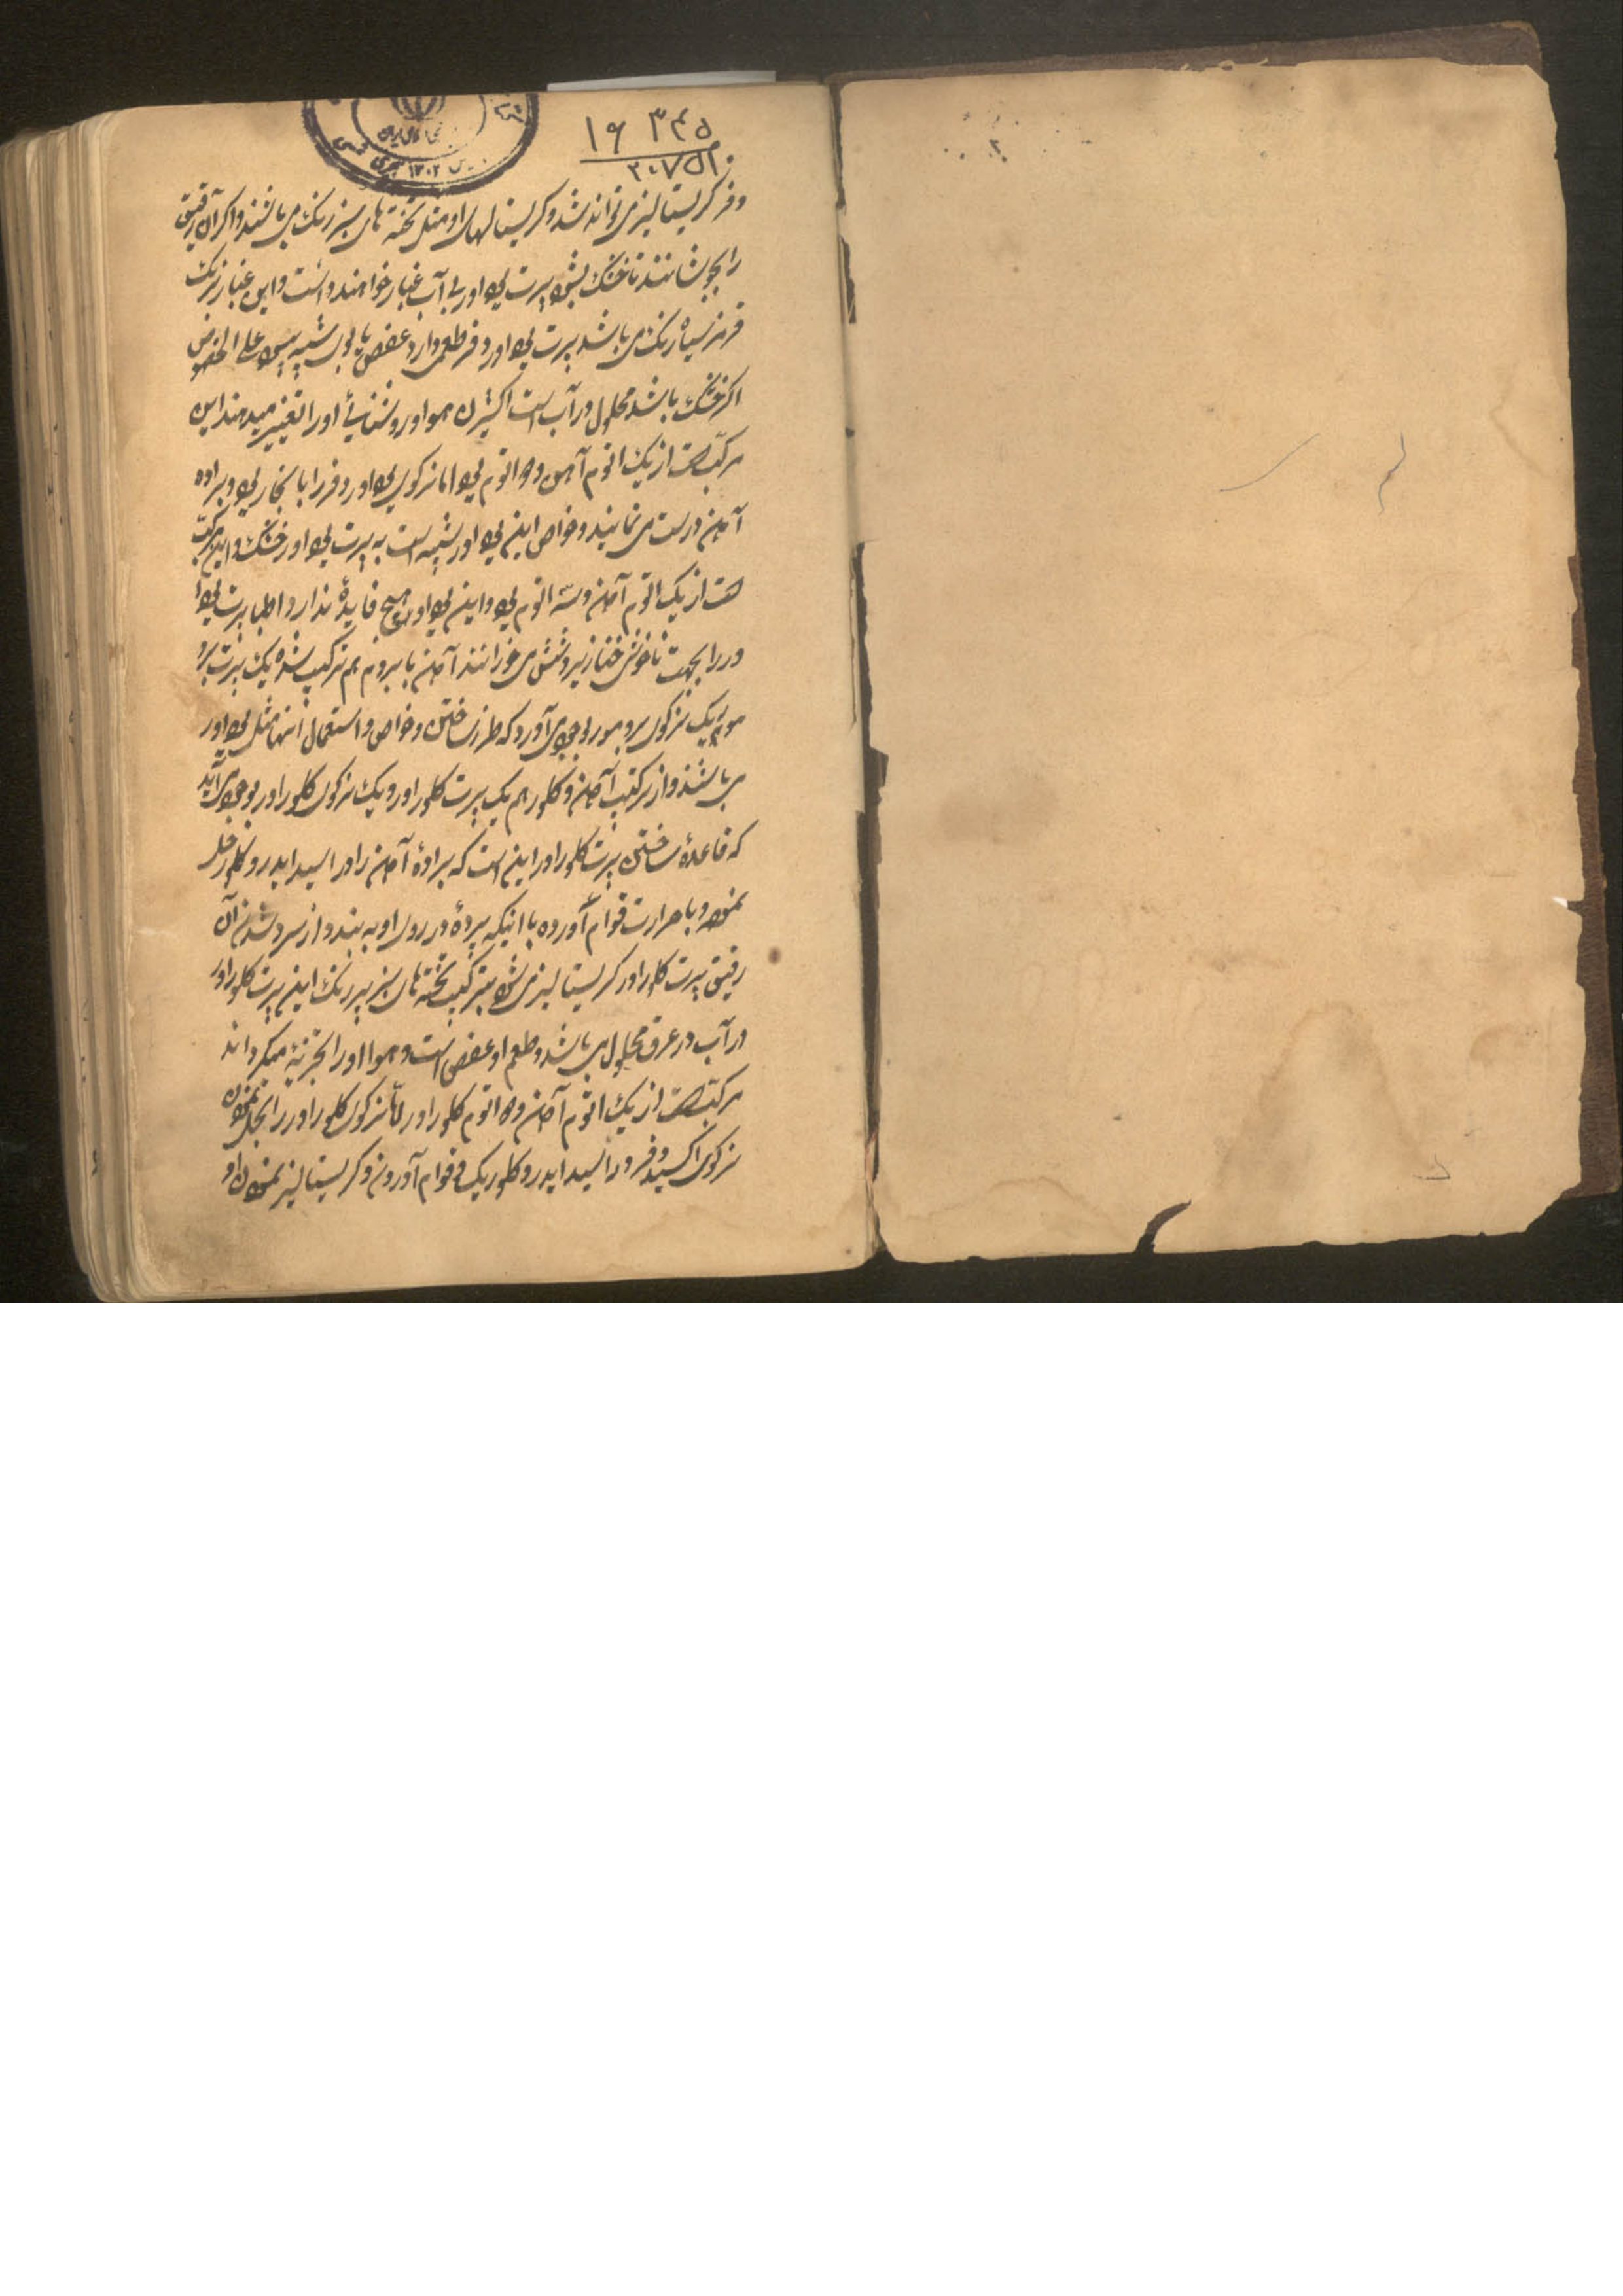 ۱۶ ۳۴۵
۲۰۷۵۲
و فر کریستالیز می تواند شد و کریستالهای او مثل تخته های سبز رنگ می باشند و اگر آن رقیق
را بجوشانند تا خشک بشود پرت یود اور بی آب غبار خواهند داشت و این غبار بزنگ
قرمز سیاه رنگ می باشد پرت یود اور دو فر طعمی دارد عفص با بوی شبیه بیود علی الخصوص
اگر خشک باشد محلول در آب است اکثیژن هوا و روشنائی او را تغییر میدهند این
مرکبست از یک اتوم آهن و دو اتوم یود اما نزکوی یود اور دو فر را با بخار یود و براده
آهن درست می نمایند و خواص این یود اور شبیه است به پرت یود اور خشک و این مرکب
هست از یک اتوم آهن و سه اتوم یود و این یود اور هیچ فایده ندارد اطبا پرت یود ا
ور را بجهت ناخوشی خنازیر و شش می خورانند آهن با بروم هم ترکیب شده یک پرت برو
مور یک نزکوی برومور بوجود می آورد که طرز ساختن و خواص و استعمال آنها مثل یود اور
می باشند و از ترکیب آهن و کلور هم یک پرت کلور اور و یک نزکوی کلور اور بوجود می آید
که قاعدهٔ ساختن پرت کلور اور این است که برادهٔ آهن را در اسید ایدروکلور حل
نموده و با حرارت قوام آورده با اینکه پردهٔ در روی او به بندد و از سرد شدن آن
رقیق پرت کلور اور کریستالیز می شود بترکیب تخته های سبز پر رنگ این پرت کلور اور
در آب و در عرق محلول می باشد و طعم او عفص است و هوا او را تجزیه میگرداند
مرکبست از یک اتوم آهن و دو اتوم کلور اور اما نزکوی کلور اور را بحل نمودن
نزکوی اکسید دو فر در اسید ایدروکلوریک و قوام آوردن و کریستالیز نمودن او